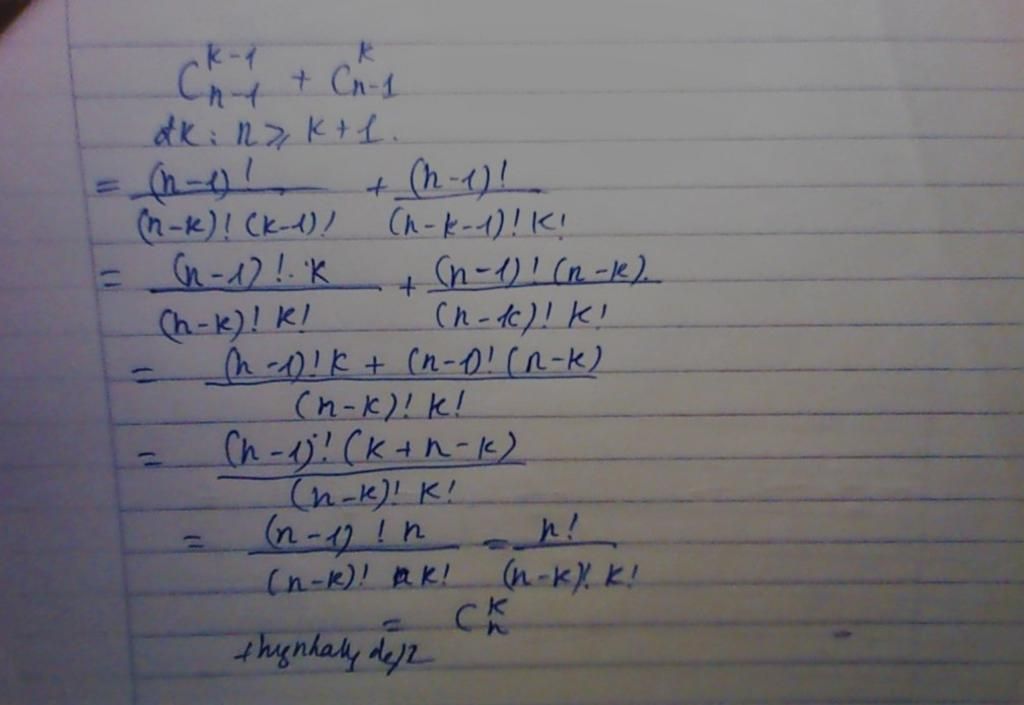 C_{n-1}^{k-1} + C_{n-1}^{k}
đk: n ≥ k+1.
= \frac{(n-1)!}{(n-k)!(k-1)!} + \frac{(n-1)!}{(n-k-1)!k!}
= \frac{(n-1)!.k}{(n-k)!k!} + \frac{(n-1)!(n-k)}{(n-k)!k!}
= \frac{(n-1)!k + (n-1)!(n-k)}{(n-k)!k!}
= \frac{(n-1)!(k+n-k)}{(n-k)!k!}
= \frac{(n-1)!n}{(n-k)!k!} = \frac{n!}{(n-k)!k!}
= C_{n}^{k}